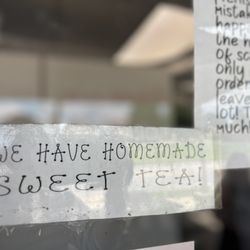 WE HAVE HOMEMADE
SWEET TEA!
mistak
happ
the n
of sc
only
order
leav
lot! T
much